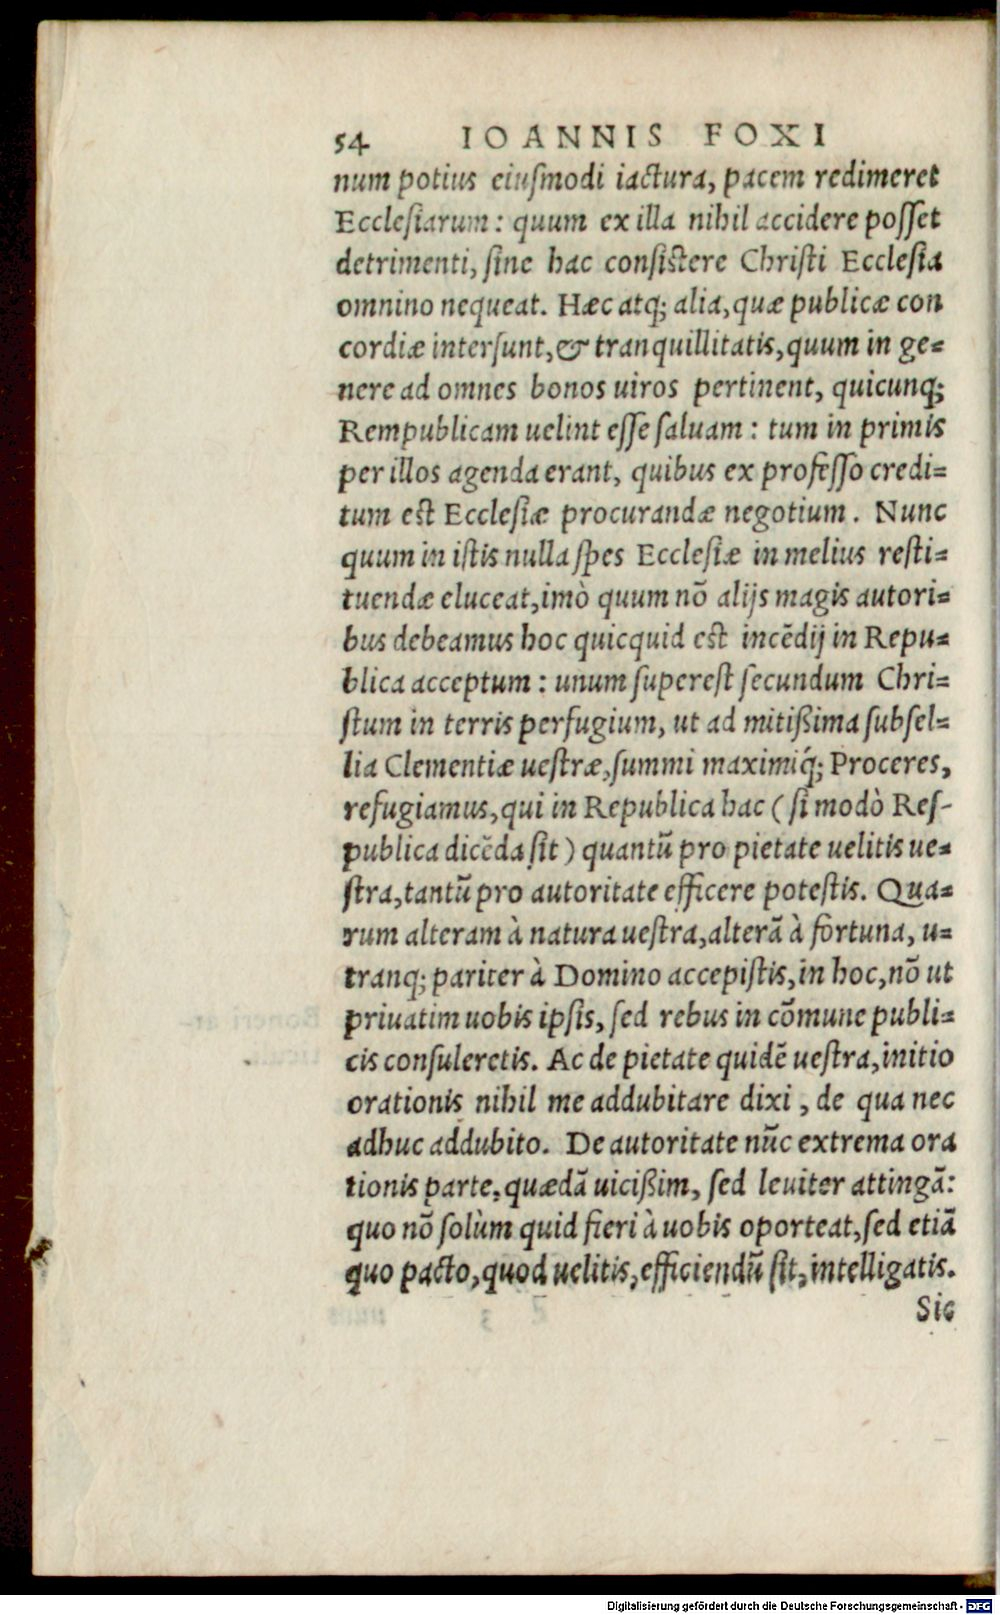 54 IOANNIS FOXI
num potius eiuſmodi iactura, pacem redimeret
Eccleſiarum: quum ex illa nihil accidere poſſet
detrimenti, ſine hac conſiſtere Chriſti Eccleſia
omnino nequeat. Hæc atq; alia, quæ publicæ con
cordiæ interſunt, & tranquillitatis, quum in ge=
nere ad omnes bonos uiros pertinent, quicunq;
Rempublicam uelint eſſe ſaluam: tum in primis
per illos agenda erant, quibus ex profeſſo credi=
tum eſt Eccleſiæ procurandæ negotium. Nunc
quum in iſtis nulla ſpes Eccleſiæ in melius reſti=
tuendæ eluceat, imò quum nō alijs magis autori=
bus debeamus hoc quicquid eſt incēdij in Repu=
blica acceptum: unum ſupereſt ſecundum Chri=
ſtum in terris perfugium, ut ad mitißima ſubſel=
lia Clementiæ ueſtræ, ſummi maximiq́; Proceres,
refugiamus, qui in Republica hac (ſi modò Reſ-
publica dicēda ſit) quantū pro pietate uelitis ue=
ſtra, tantū pro autoritate efficere poteſtis. Qua=
rum alteram à natura ueſtra, alterā à fortuna, u=
tranq; pariter à Domino accepiſtis, in hoc, nō ut
priuatim uobis ipſis, ſed rebus in cōmune publi=
cis conſuleretis. Ac de pietate quidē ueſtra, initio
orationis nihil me addubitare dixi, de qua nec
adhuc addubito. De autoritate nūc extrema ora
tionis parte, quædā uicißim, ſed leuiter attingā:
quo nō ſolùm quid fieri à uobis oporteat, ſed etiā
quo pacto, quod uelitis, efficiendū ſit, intelligatis.
Sic
Digitalisierung gefördert durch die Deutsche Forschungsgemeinschaft - DFG